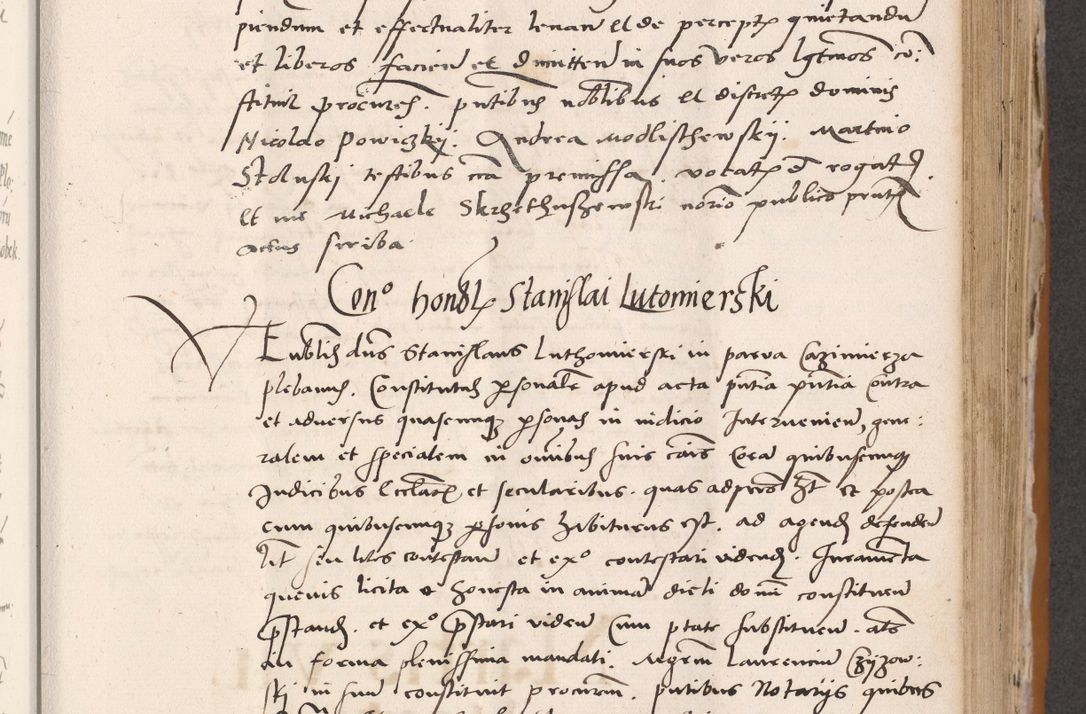 piendum et effectualiter levan et de percept quietandu
et liberos facien et dimitten in suos veros lgtmos co:
stituit procures. pntibus nobilibus et discret dominis
Nicolao Powiczkij. Andrea Modlischewskij. Martino
Stolnski testibus circa premissa. vocat et rogat.
Et me Michaele Skrzethuszewski norio publico pnt
actus scriba
Con° honbl Stanislai Lutomierski
Venblis dns Stanislaus Luthomierski in parva Cazimierza
plebanus. Constitutus psonalr apud acta pntia contra
et adversus quascunq psonas in iudicio Intervenien, gene:
ralem et specialem in omibus suis cais Cora quibuscunq
Iudicibus Ecclast et secularibus. quas adpns ht et postea
cum quibuscunq psonis habiturus est. ad agend defenden
lit seu lites contestan et ex° contestari viden. Iuramenta
quevis licita et honesta in animam dicti domi constituen
pstand. et ex° pstari viden Cum ptate substituen. als
in forma plenissima mandati. Magrm Laurencium Czyzow:
ski in suum constituit procurm. pntibus Notarijs quibus